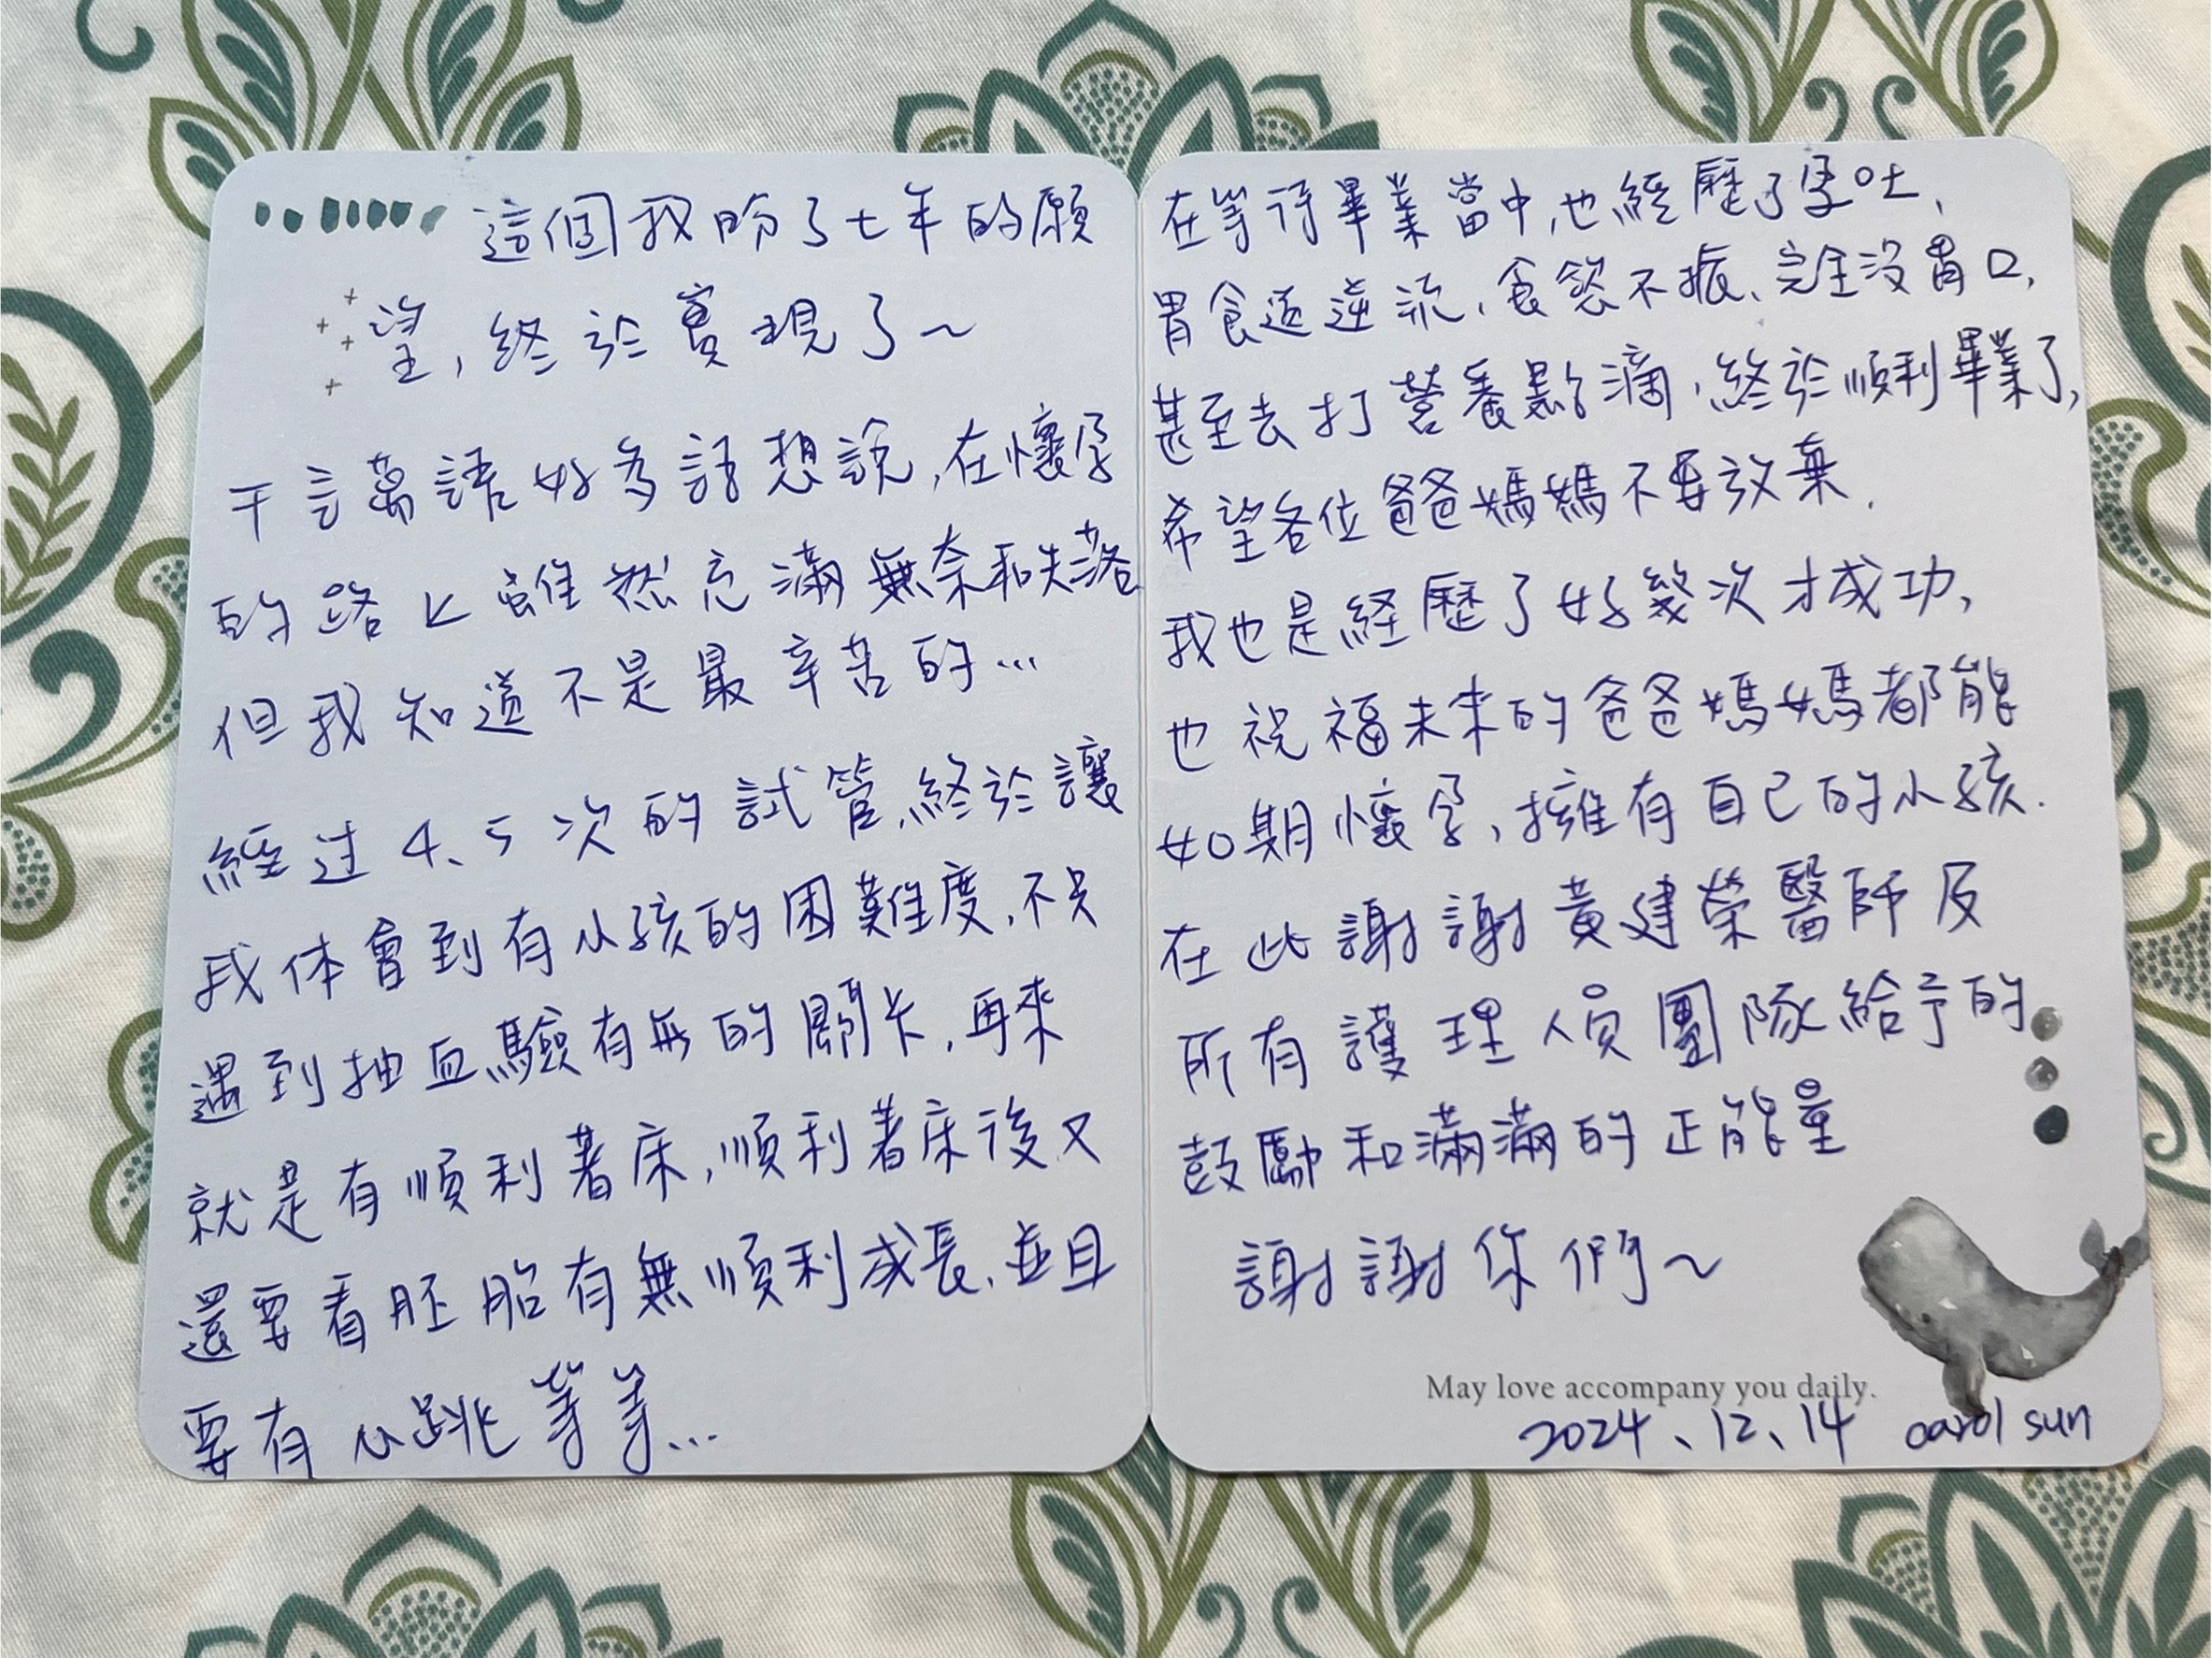 這個我盼了七年的願
望,終於實現了~
千言萬語好多話想說,在懷孕
的路上雖然充滿無奈和失落
但我知道不是最辛苦的…
經过4、5次的試管,終於讓
我体會到有小孩的困難度,不只
遇到抽血驗有無的關卡,再來
就是有順利著床,順利著床後又
還要看胚胎有無順利成長,並且
要有心跳等等…
在等待畢業當中,也經歷了孕吐、
胃食道逆流、食慾不振、完全沒胃口,
甚至去打營養點滴,終於順利畢業了,
希望各位爸爸媽媽不要放棄.
我也是經歷了好幾次才成功,
也祝福未來的爸爸媽媽都能
如期懷孕,擁有自己的小孩.
在此謝謝黃建榮醫師及
所有護理人員團隊給予的
鼓勵和滿滿的正能量
謝謝你們~
May love accompany you daily.
2024、12、14 carol sun